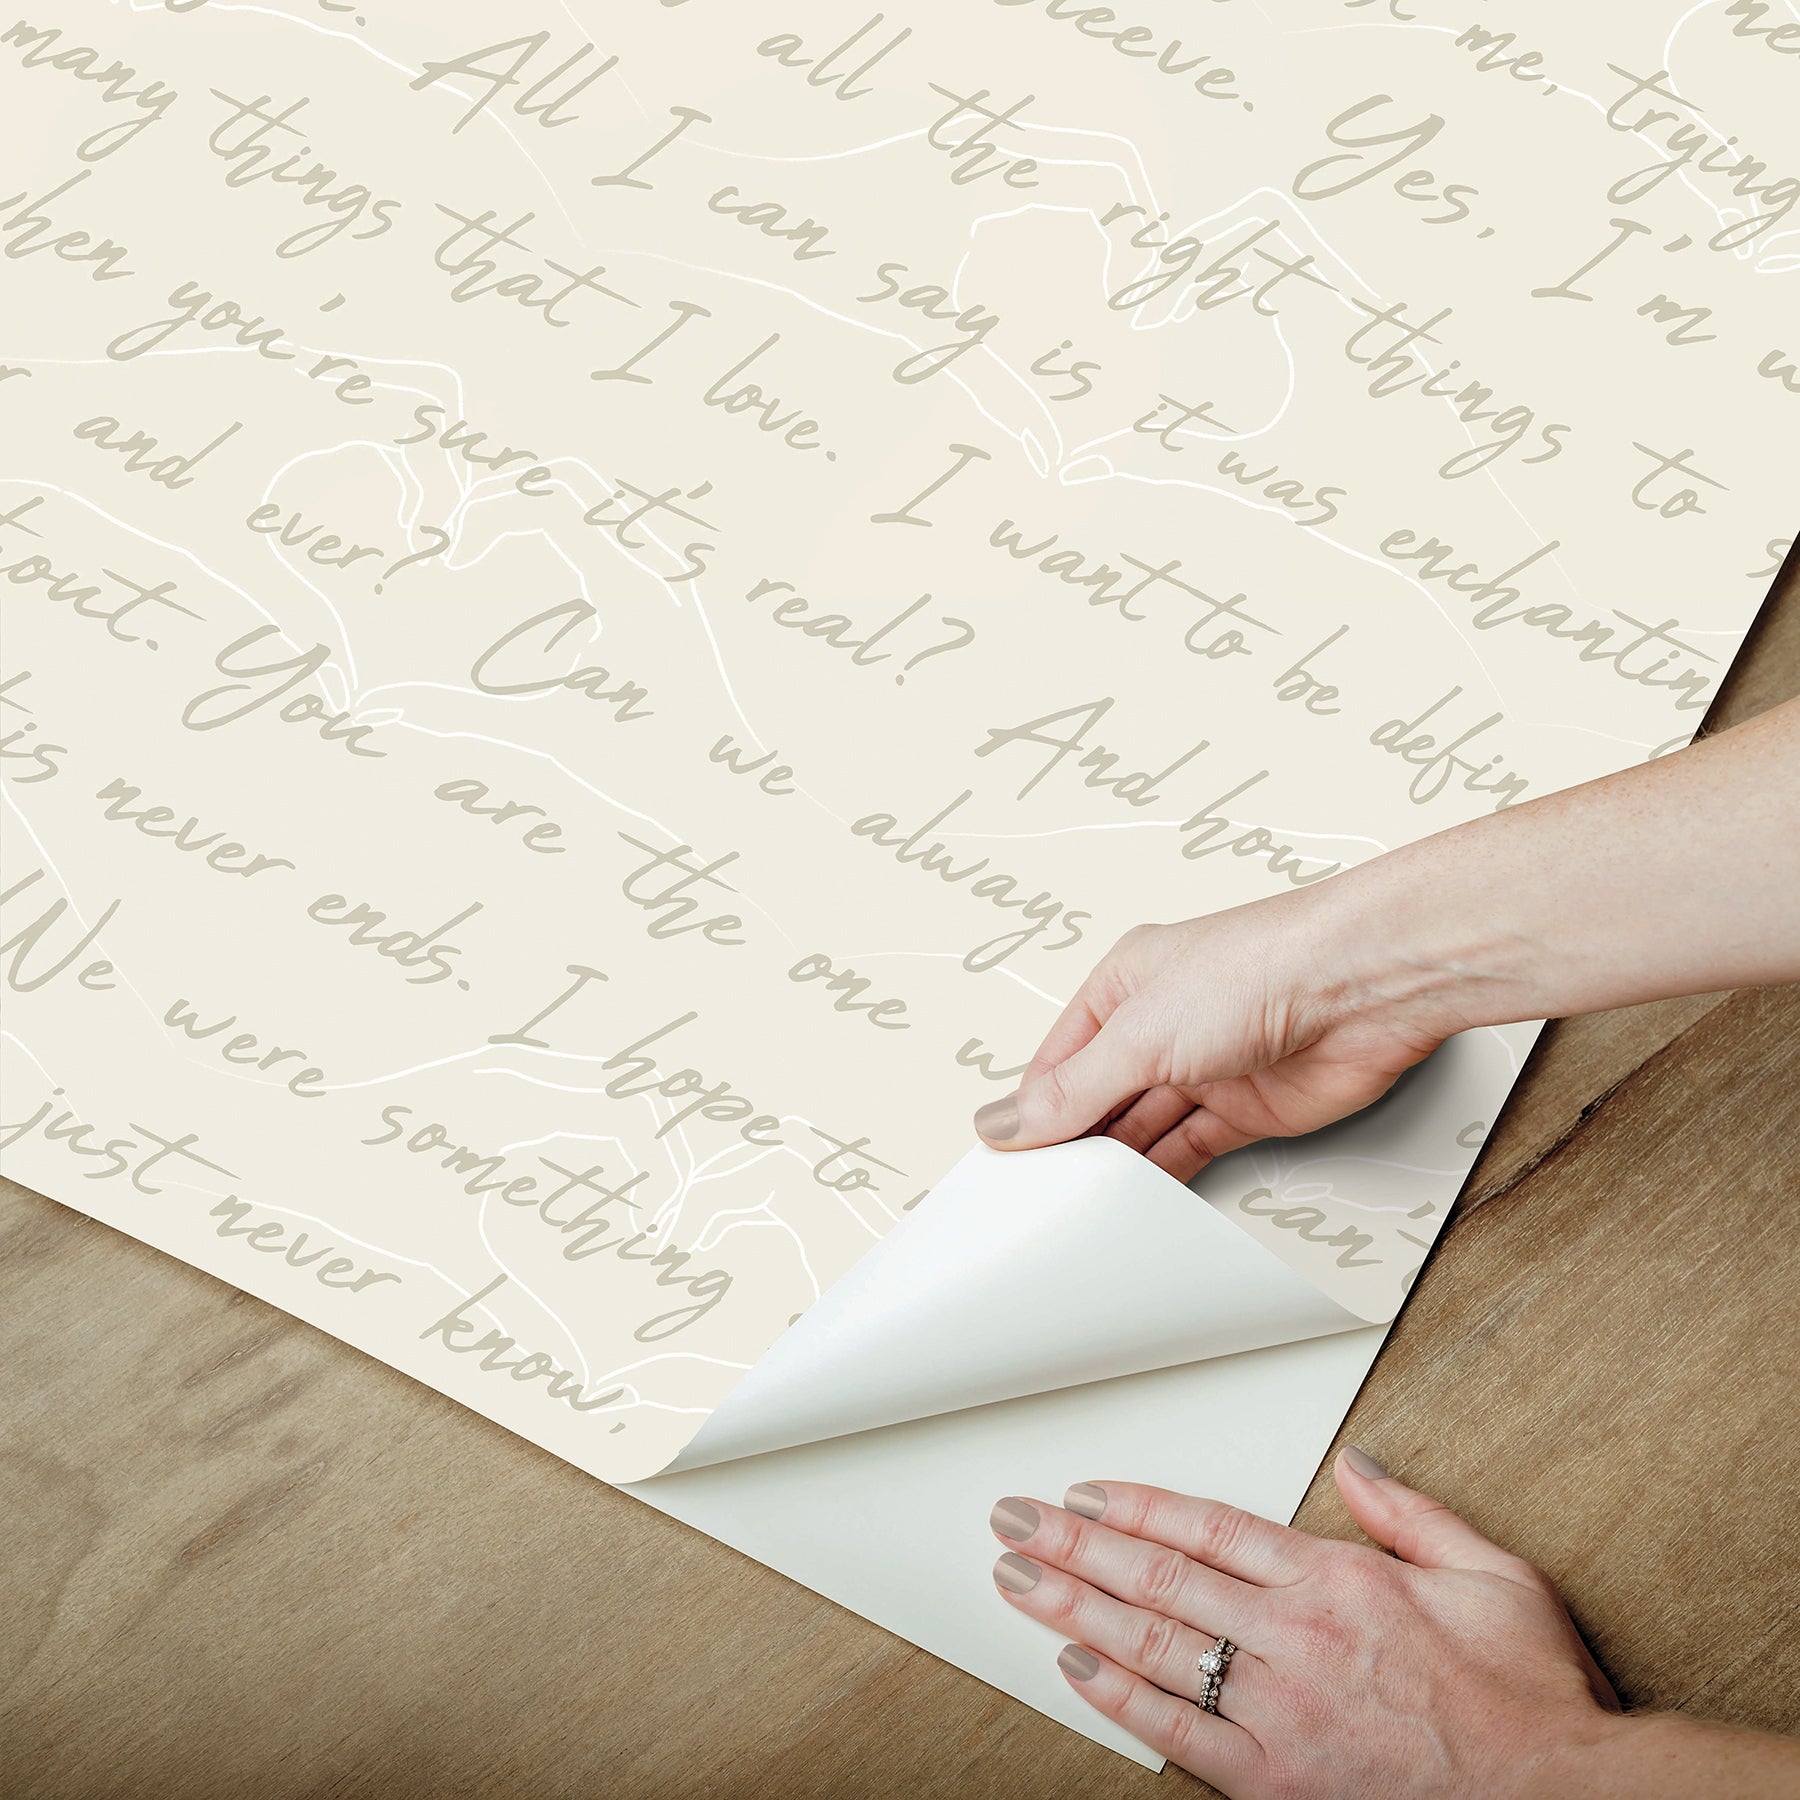 me, trying
Yes, I'm
all the right things to
All I can say is it was
many things that I love. I want to be
when you're sure it's real? And how
and ever? Can we always
You are the one can't
never ends. I hope to
We were something
just never know,